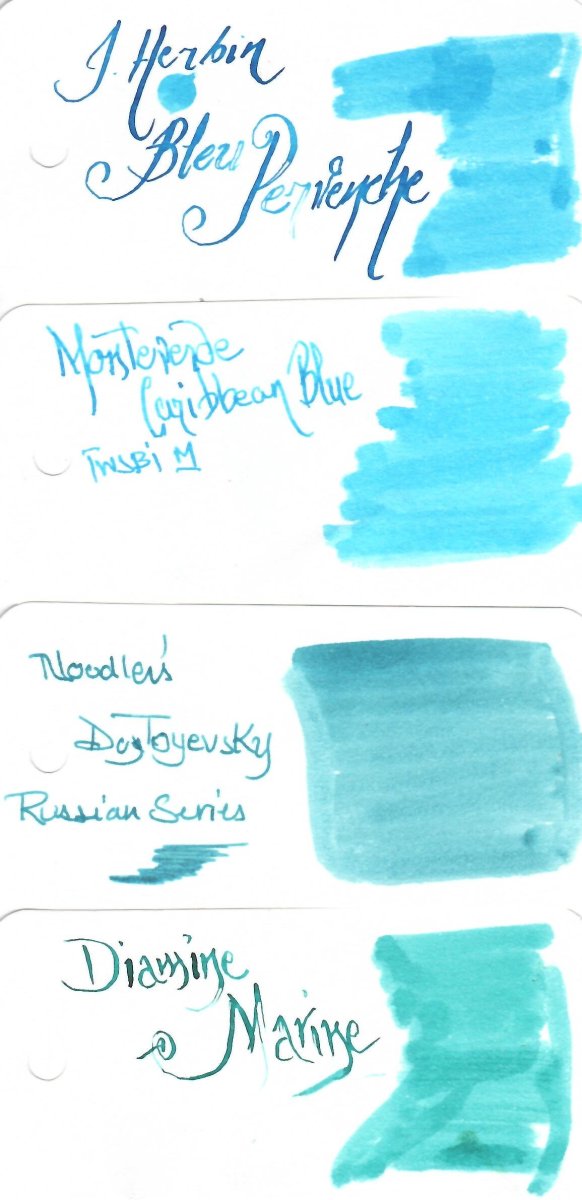 J. Herbin
Bleu Pervenche
Monteverde
Caribbean Blue
TWSBI M
Noodler's
Dostoyevsky
Russian Series
Diamine
Marine